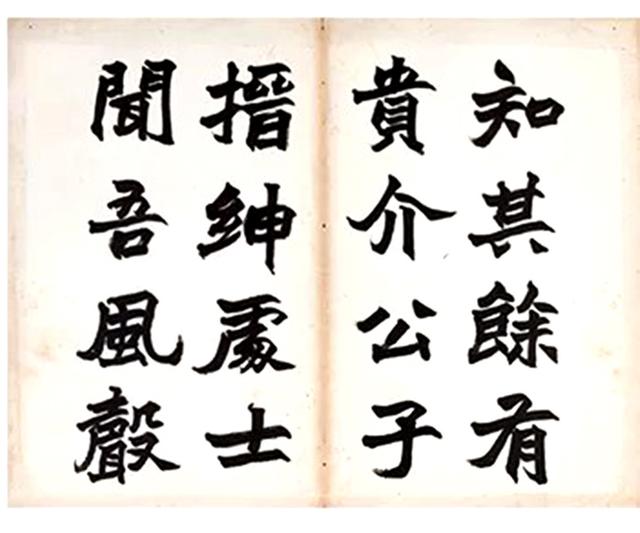 知其餘有
貴介公子
搢紳處士
聞吾風聲